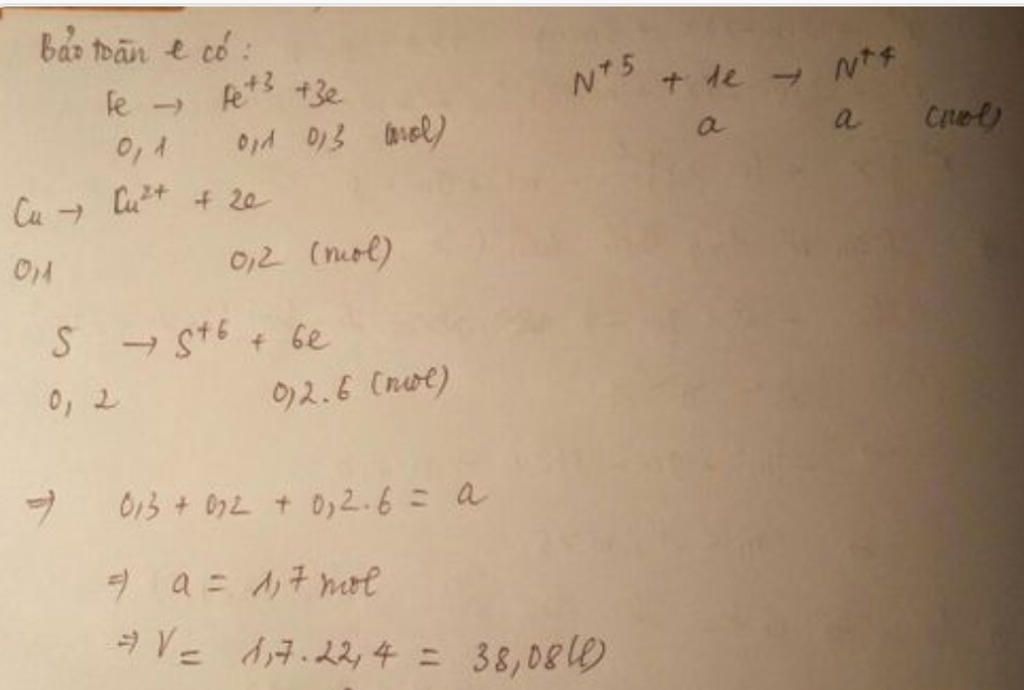 Bảo toàn e có:
Fe → Fe⁺³ + 3e
0,1 0,1 0,3 (mol)
N⁺⁵ + 1e → N⁺⁴
a a (mol)
Cu → Cu²⁺ + 2e
0,1 0,2 (mol)
S → S⁺⁶ + 6e
0,2 0,2.6 (mol)
⇒ 0,3 + 0,2 + 0,2.6 = a
⇒ a = 1,7 mol
⇒ V = 1,7.22,4 = 38,08 (l)